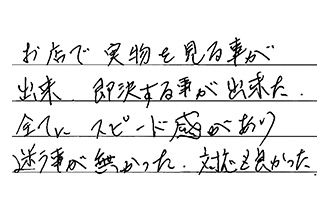 お店で実物を見る事が
出来、即決する事が出来た.
全てにスピード感があり
迷う事が無かった. 対応も良かった